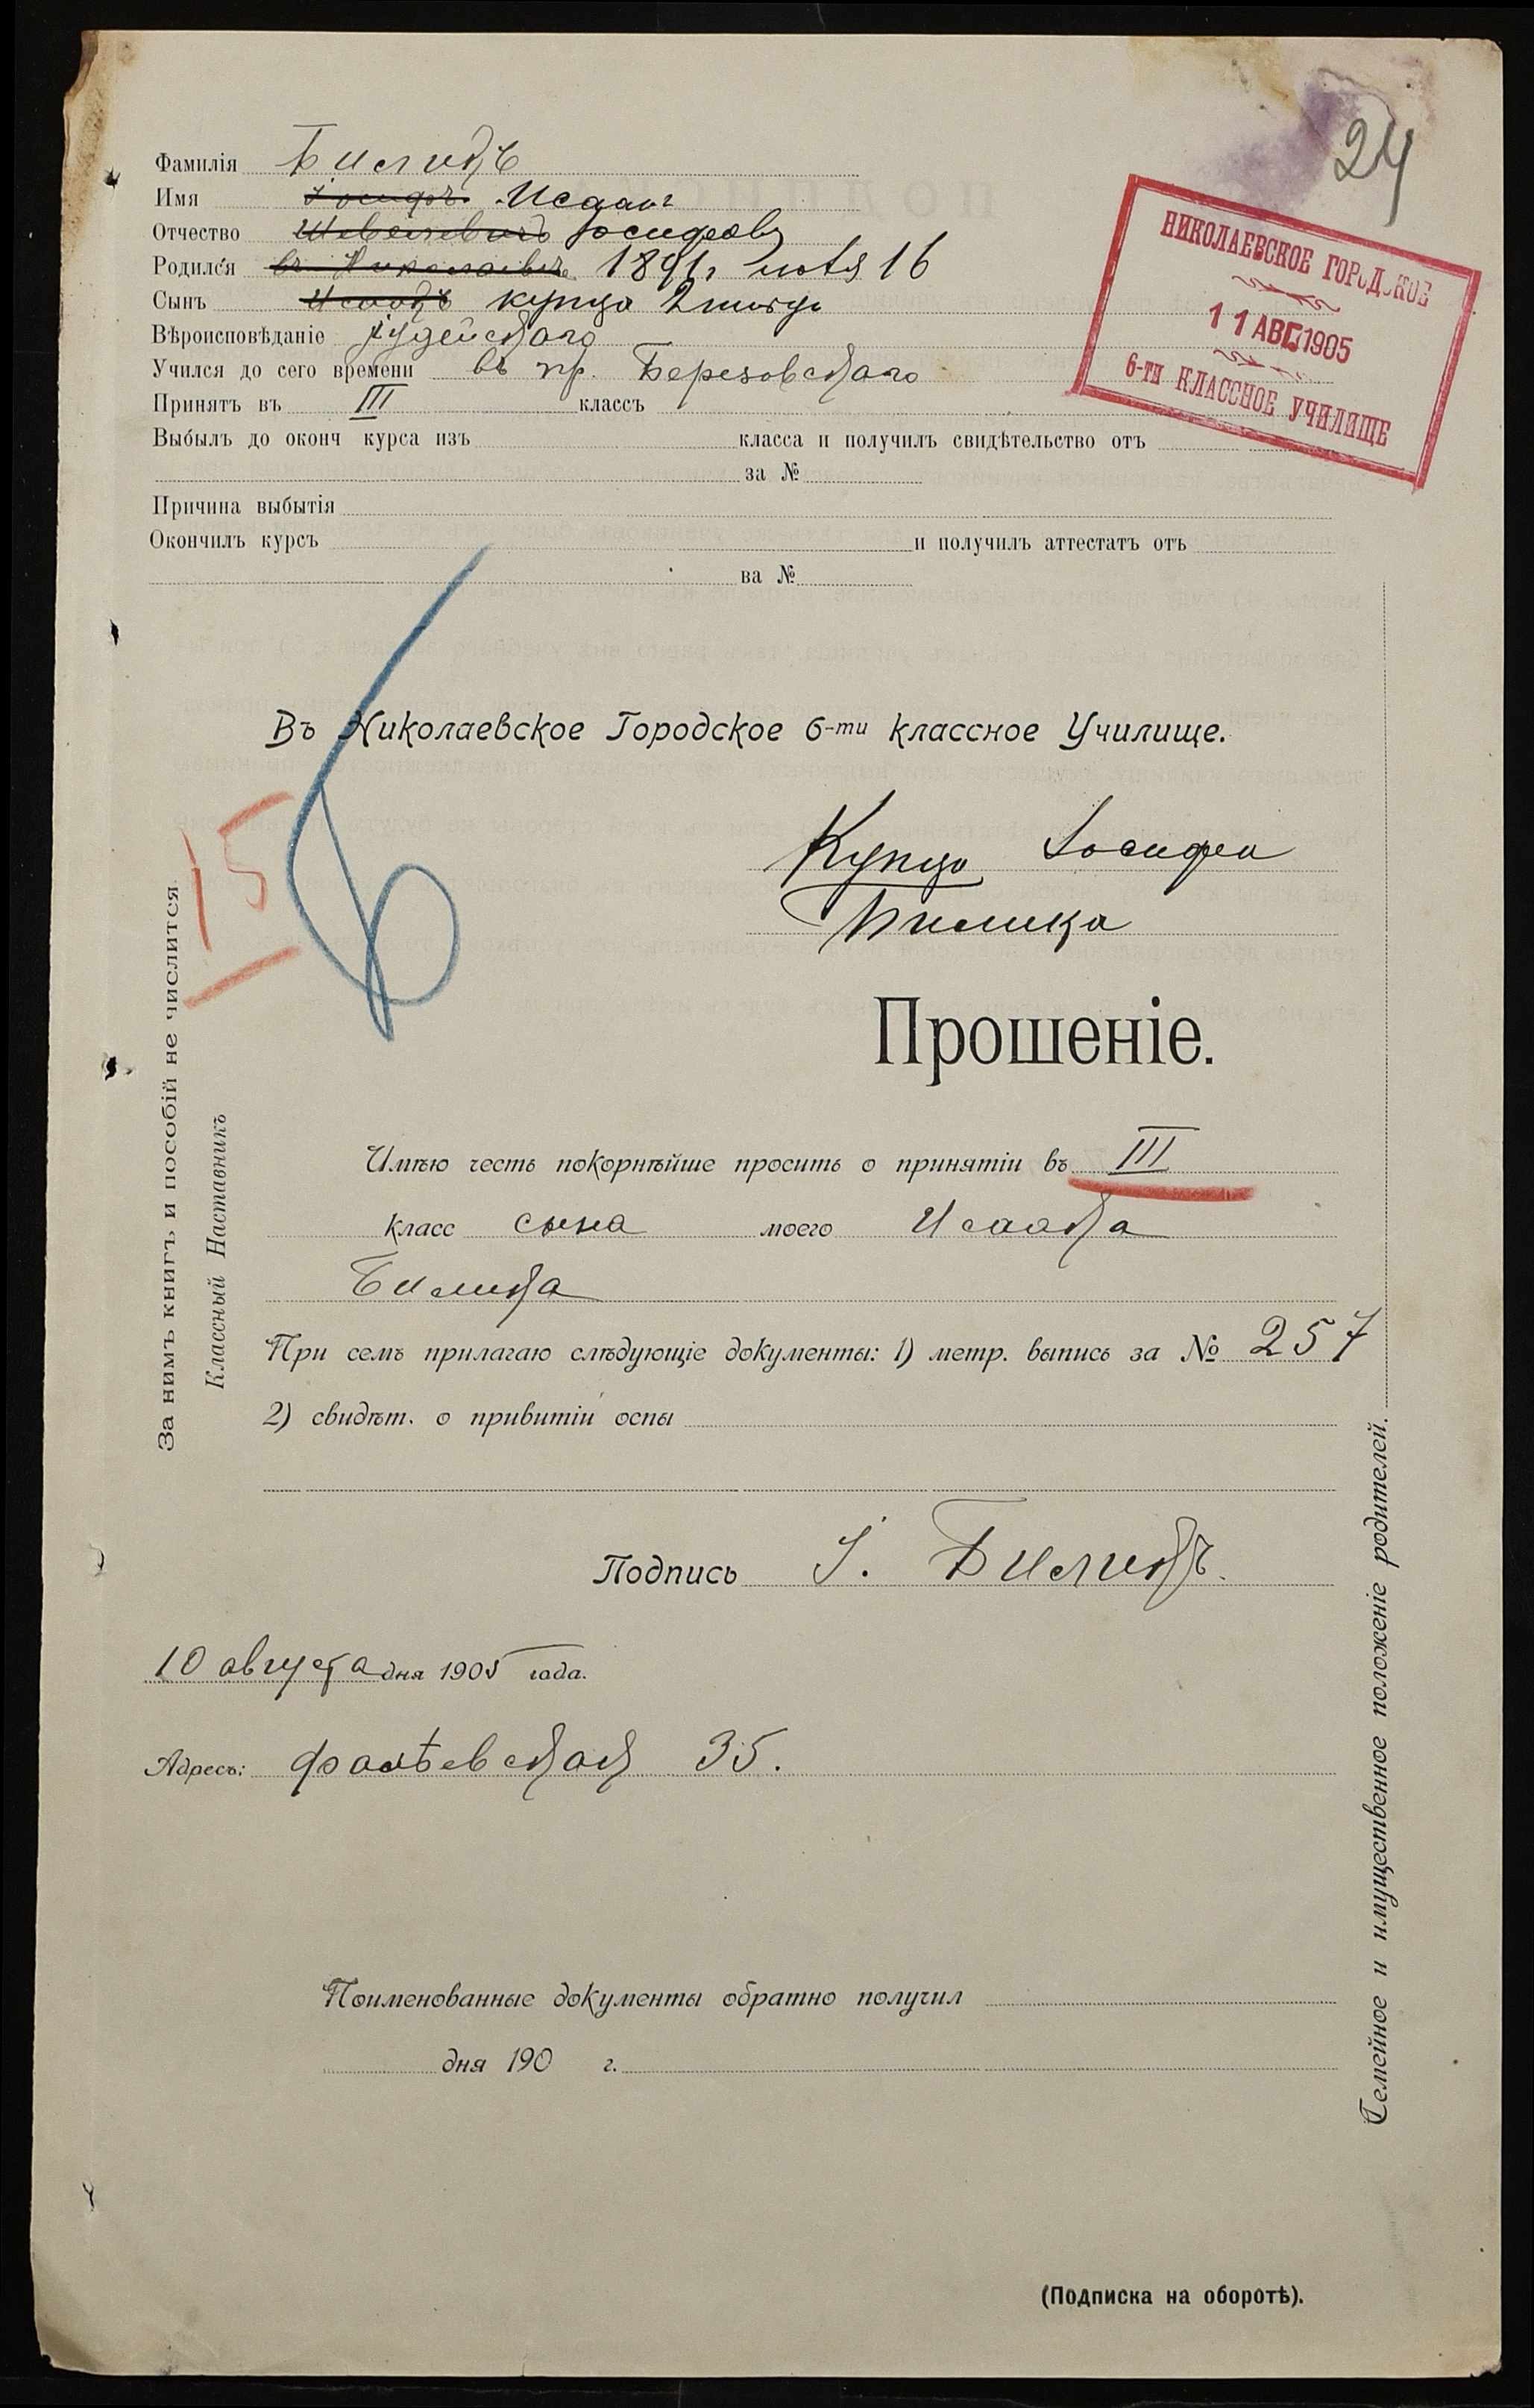 24
НИКОЛАЕВСКОЕ ГОРОДСКОЕ
11 АВГ 1905
6-ТИ КЛАССНОЕ УЧИЛИЩЕ
Фамилія Биликъ
Имя Іосифъ Исаакъ
Отчество Іосифовъ
Родился въ Николаевѣ 1891 г. 16
Сынъ Исаакъ купца 2 гильд.
Вѣроисповѣданіе Іудейскаго
Учился до сего времени въ пр. Березовскаго
Принятъ въ III классъ
Выбылъ до оконч курса изъ класса и получилъ свидѣтельство отъ
за №
Причина выбытія
Окончилъ курсъ и получилъ аттестатъ отъ
за №
Въ Николаевское Городское 6-ти классное Училище.
15
Купца Іосифа
Билика
Прошеніе.
Имѣю честь покорнѣйше просить о принятіи въ III
класс сына моего Исаака
Билика
При семъ прилагаю слѣдующіе документы: 1) метр. выпись за № 257
2) свидѣт. о привитіи оспы
Подпись І. Биликъ.
10 августа дня 1905 года.
Адресъ: Фалѣевская 35.
Поименованные документы обратно получил
дня 190 г.
(Подписка на оборотѣ).
За нимъ книгъ и пособій не числится
Классный Наставникъ
Семейное и имущественное положеніе родителей.